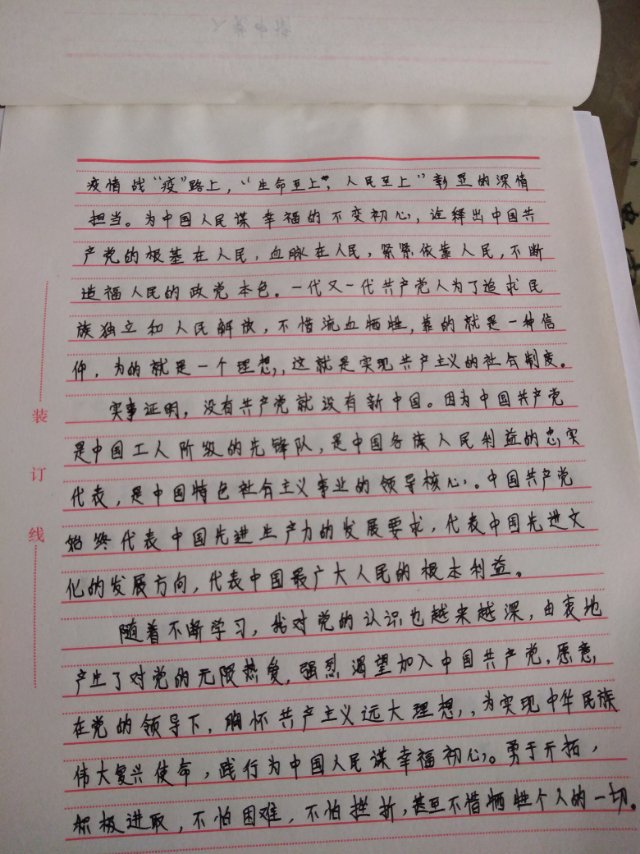 疫情战“疫”路上，“生命至上”，人民至上”彰显的深情
担当。为中国人民谋幸福的不变初心，诠释出中国共
产党的根基在人民，血脉在人民，紧紧依靠人民，不断
造福人民的政党本色。一代又一代共产党人为了追求民
族独立和人民解放，不惜流血牺牲，靠的就是一种信
仰，为的就是一个理想，这就是实现共产主义的社会制度。
实事证明，没有共产党就没有新中国。因为中国共产党
是中国工人阶级的先锋队，是中国各族人民利益的忠实
代表，是中国特色社会主义事业的领导核心。中国共产党
始终代表中国先进生产力的发展要求，代表中国先进文
化的发展方向，代表中国最广大人民的根本利益。
随着不断学习，我对党的认识也越来越深，由衷地
产生了对党的无限热爱，强烈渴望加入中国共产党，愿意，
在党的领导下，胸怀共产主义远大理想，为实现中华民族
伟大复兴使命，践行为中国人民谋幸福初心。勇于开拓，
积极进取，不怕困难，不怕挫折，甚至不惜牺牲个人的一切。
装
订
线